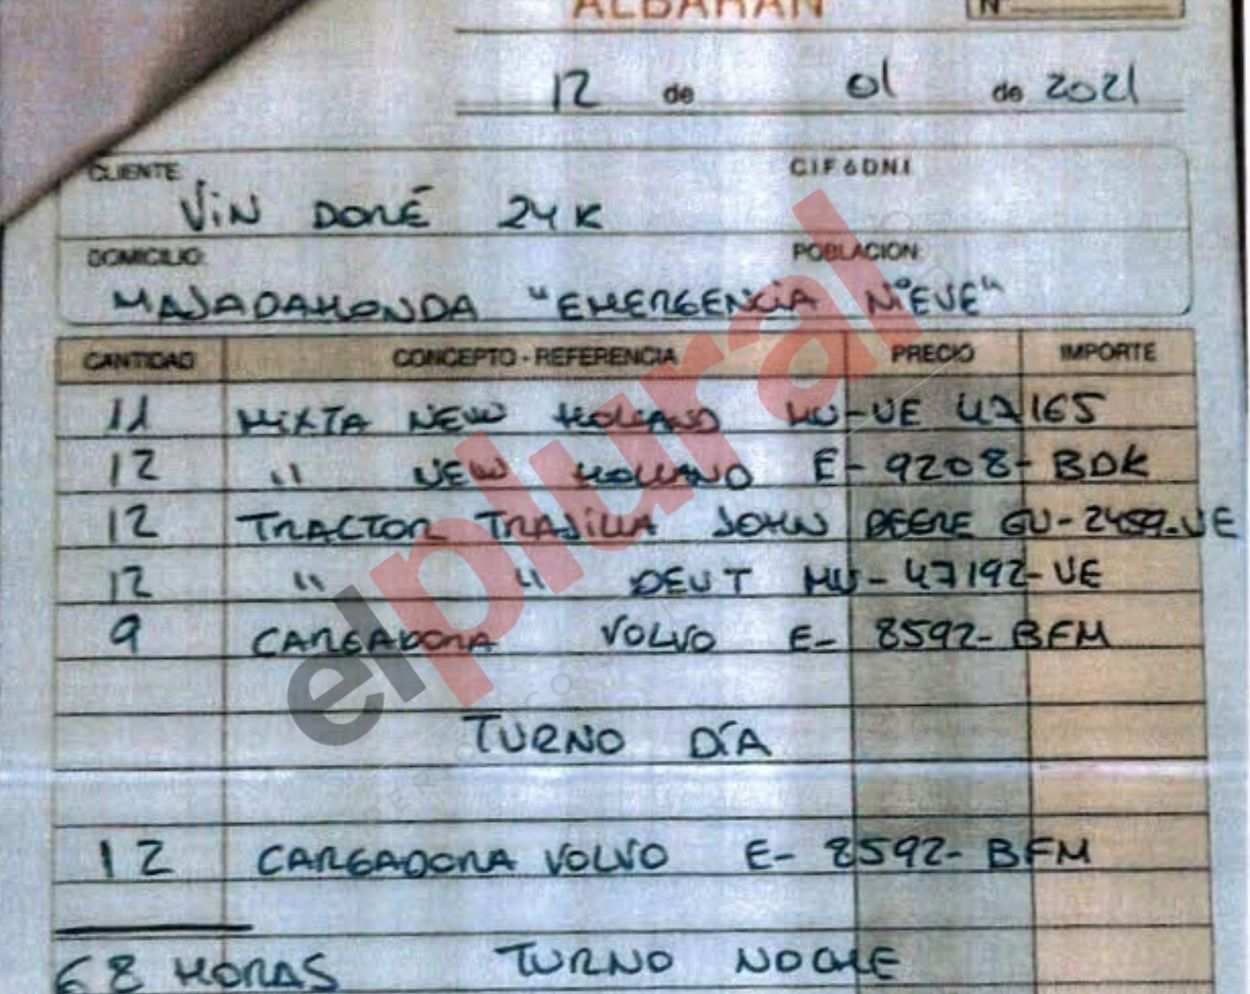 ALBARAN
Nº
12 de 01 de 2021
CLIENTE C.I.F. ó D.N.I.
ViN DORÉ 24 K
DOMICILIO: POBLACION:
MAJADAHONDA "EMERGENCiA NiEVE"
CANTIDAD CONCEPTO - REFERENCIA PRECIO IMPORTE
11 MiXTA NEW HOLLAND MU-VE 47165
12 " NEW HOLLAND E-9208-BDK
12 TRACTOR TRAJiLLA JOHN DEERE GU-2459-VE
12 " " DEUT MU-47192-VE
9 CARGADORA VOLVO E-8592-BFM
TURNO DÍA
12 CARGADORA VOLVO E-8592-BFM
68 HORAS TURNO NOCHE
el plural